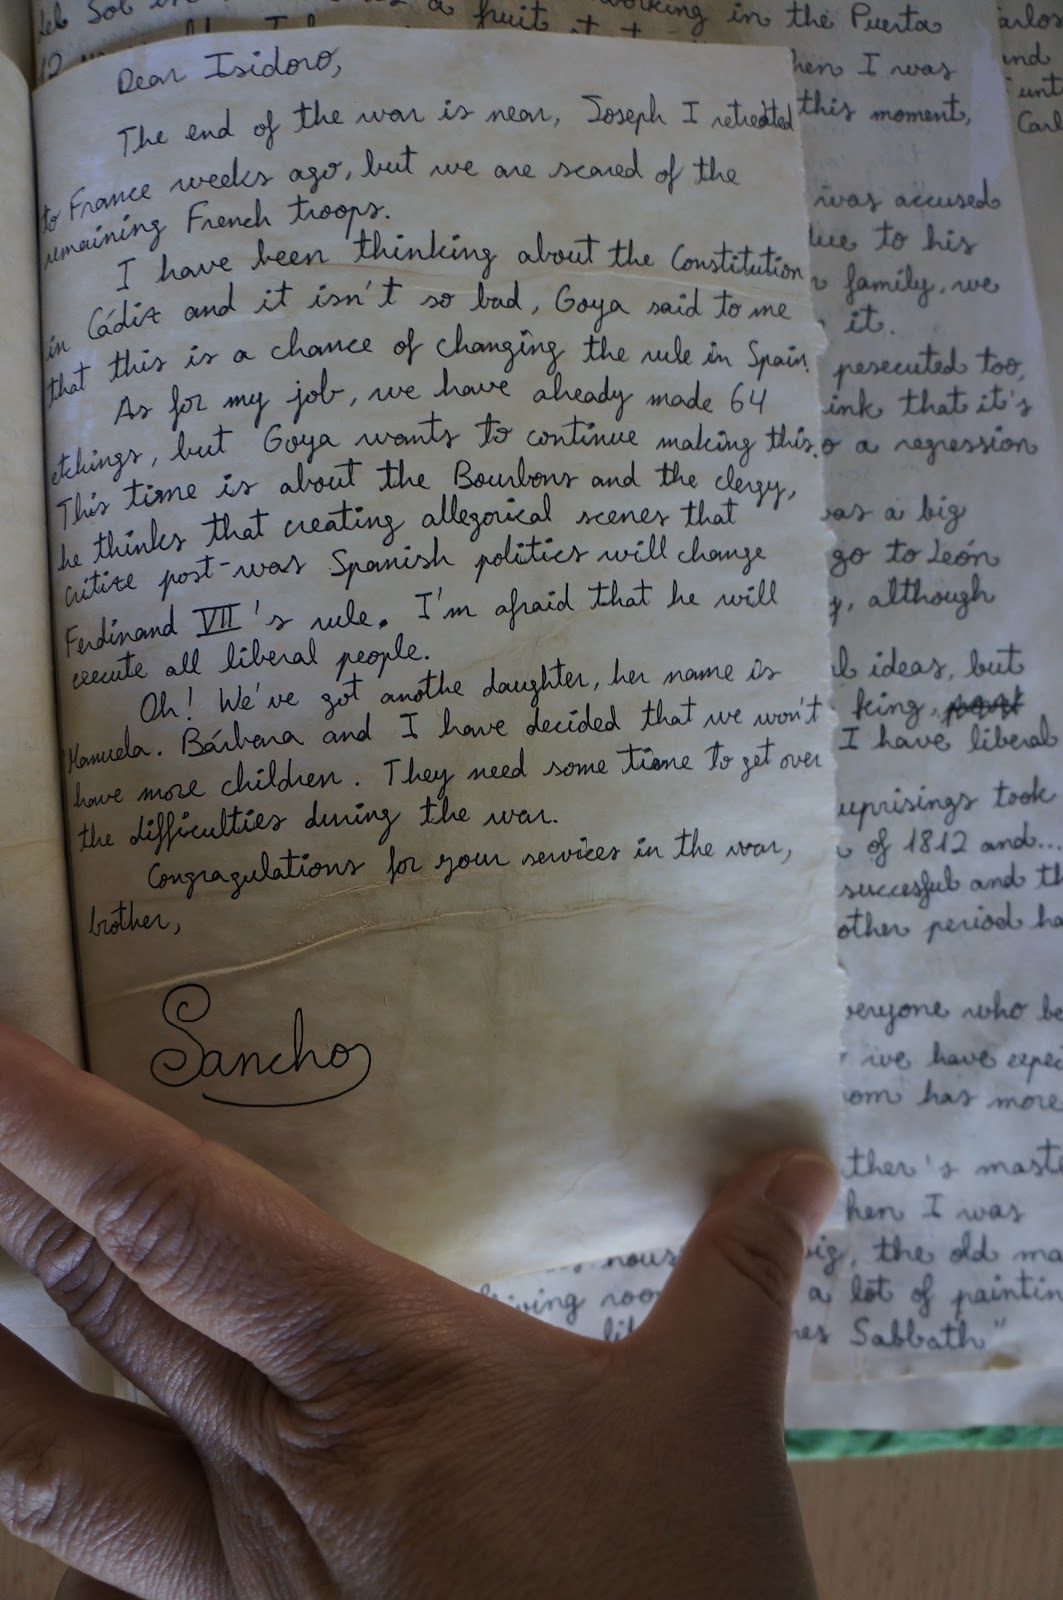 Dear Isidoro,
The end of the war is near, Joseph I retreated
to France weeks ago, but we are scared of the
remaining French troops.
I have been thinking about the Constitution
in Cádiz and it isn't so bad, Goya said to me
that this is a chance of changing the rule in Spain.
As for my job, we have already made 64
etchings, but Goya wants to continue making this.
This time is about the Bourbons and the clergy,
he thinks that creating allegorical scenes that
critize post-was Spanish politics will change
Ferdinand VII's rule. I'm afraid that he will
execute all liberal people.
Oh! We've got anothe daughter, her name is
Manuela. Bárbara and I have decided that we won't
have more children. They need some time to get over
the difficulties during the war.
Congragulations for your services in the war,
brother,
Sancho
del Sol in a fruit working in the Puerta
12
hen I was
this moment,
was accused
due to his
family, we
it.
pesecuted too,
ink that it's
o a regression
as a big
go to León
y, although
l ideas, but
king,
I have liberal
uprisings took
of 1812 and...
succesful and th
other period ha
veryone who be
we have expec
om has more
ther's maste
hen I was
big, the old ma
living roo a lot of paintin
hes Sabbath"
arlos
and
unt
Carl